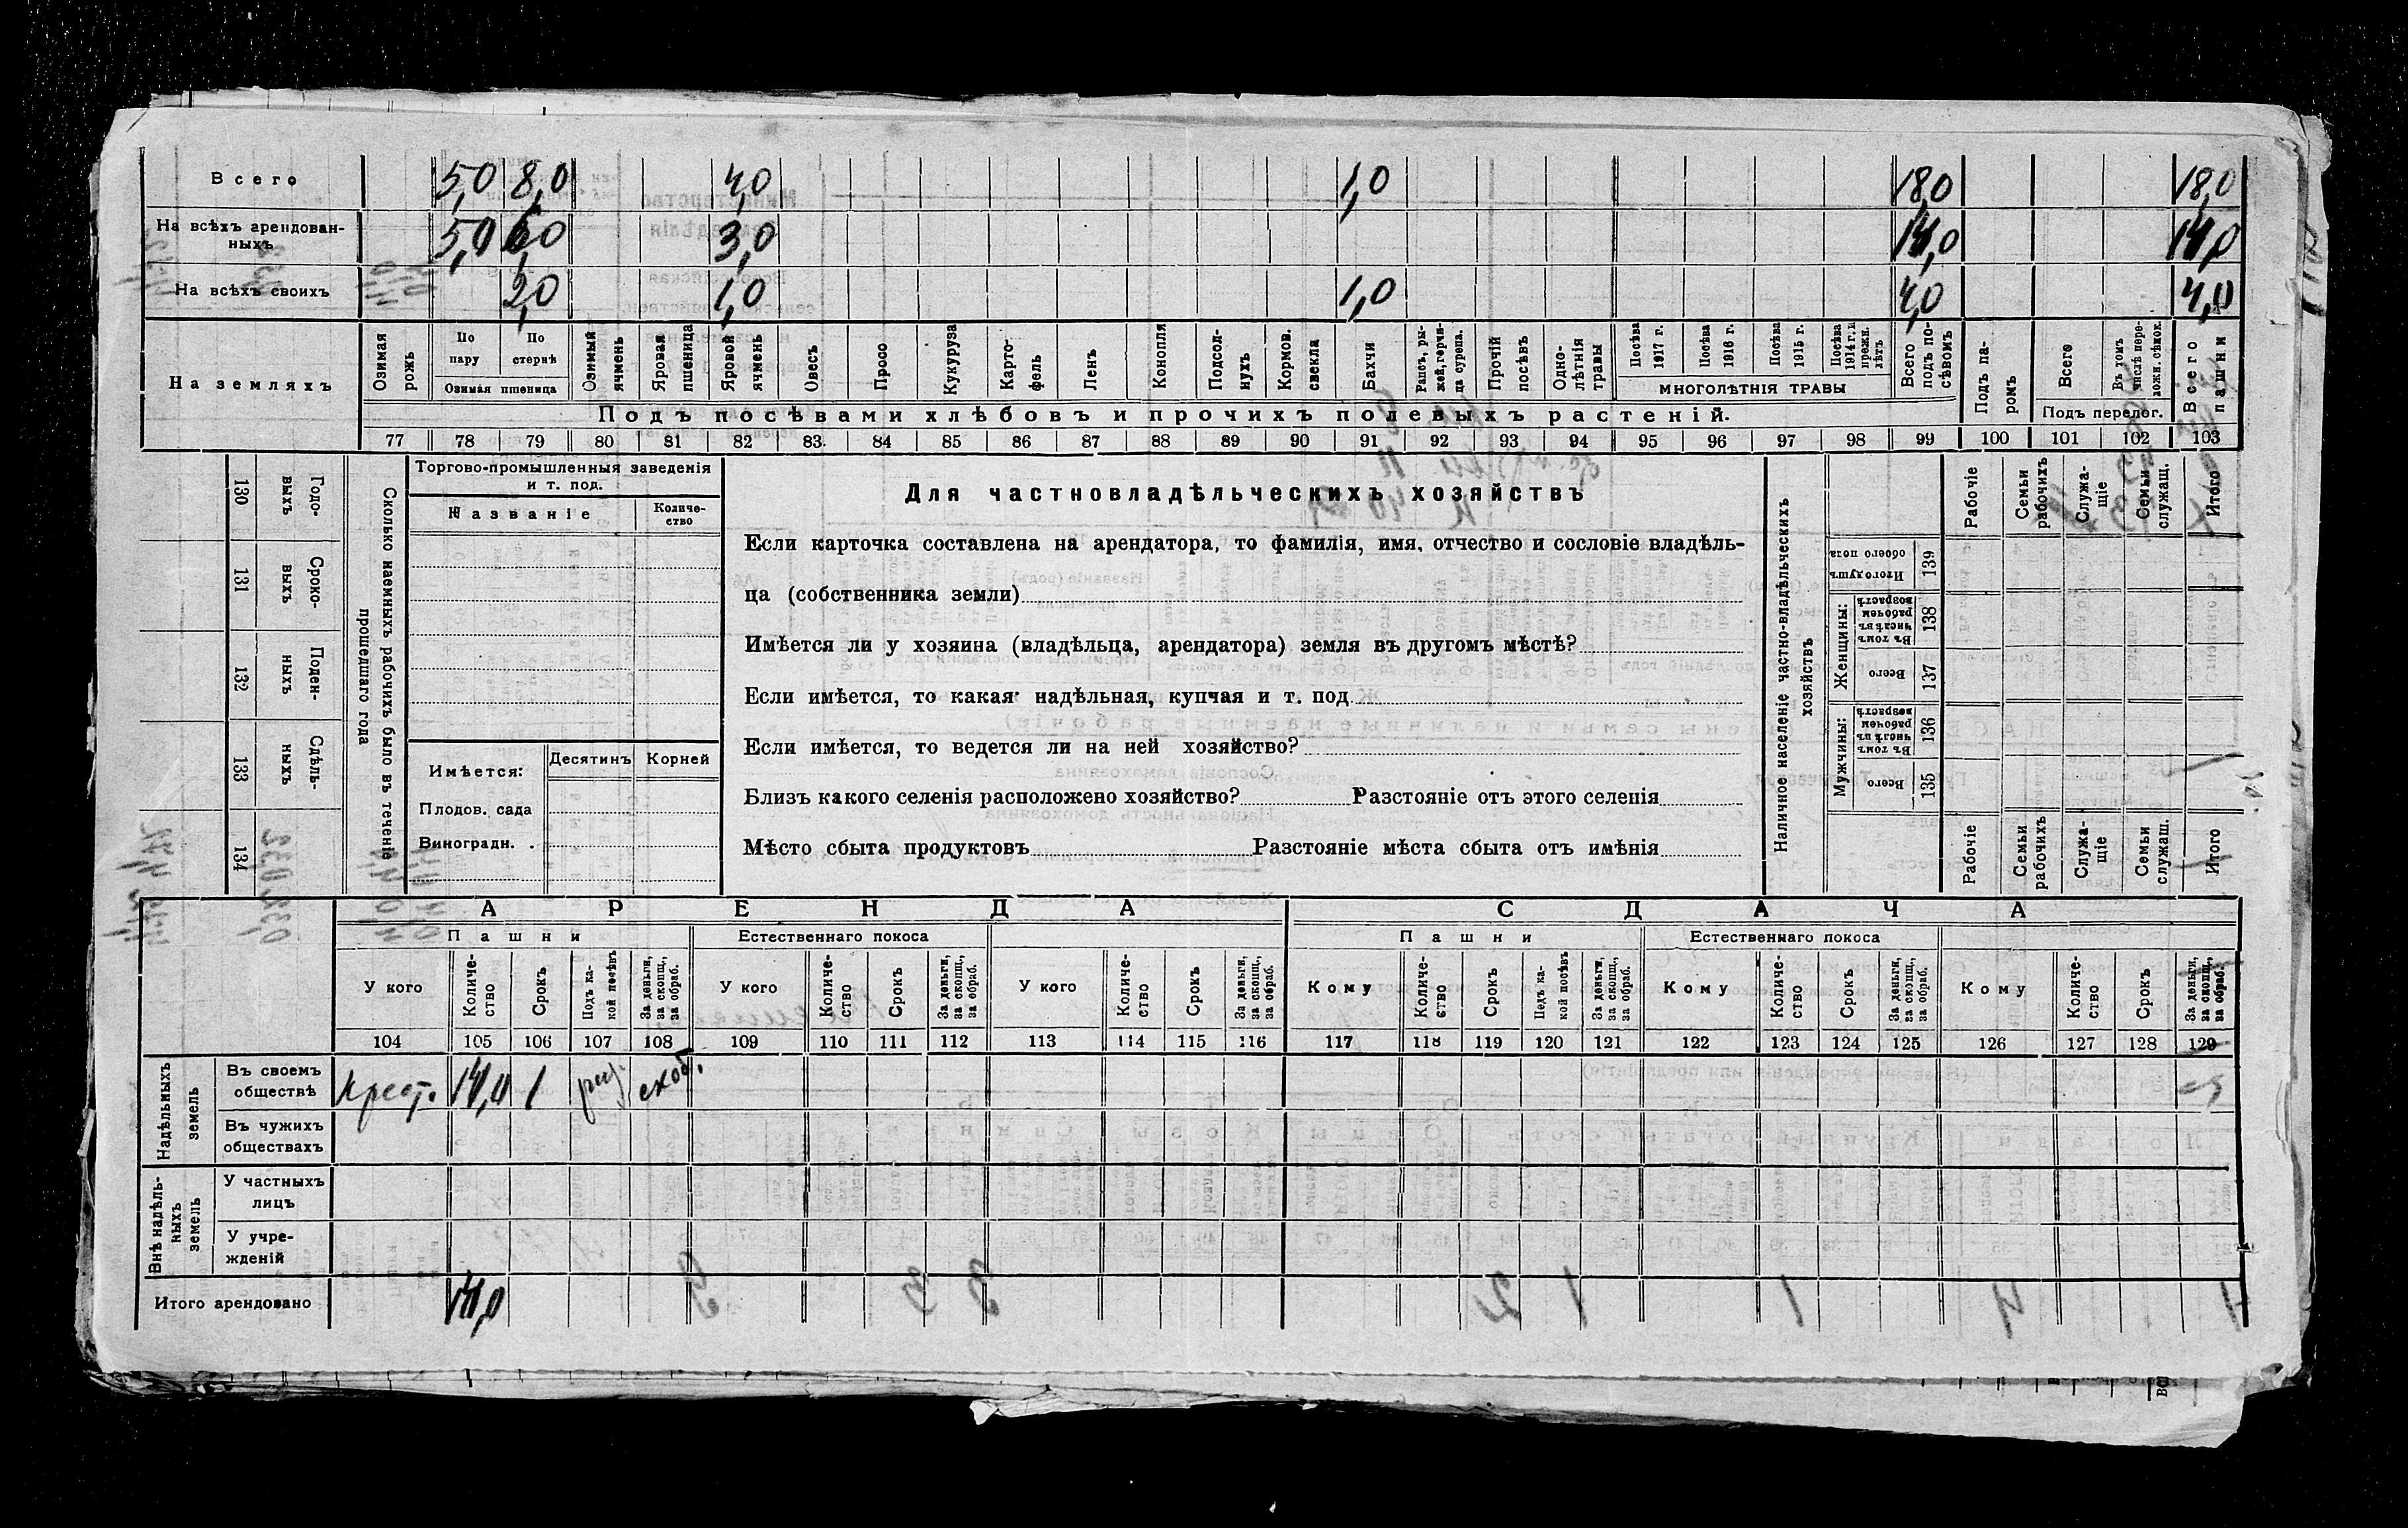 Всего 5,0 8,0 4,0 1,0 18,0 18,0
На всѣхъ арендован-
ныхъ 5,0 6,0 3,0 14,0 14,0
На всѣхъ своихъ 2,0 1,0 1,0 4,0 4,0
На земляхъ
Озимая рожь
По пару
По стернѣ
Озимая пшеница
Озимый ячмень
Яровая пшеница
Яровой ячмень
Овесъ
Просо
Кукуруза
Карто-
фель
Ленъ
Конопля
Подсол-
нухъ
Кормов.
свекла
Бахчи
Рапсъ, ры-
жей, горчи-
ца сурепа.
Прочій посѣвъ
Одно-
лѣтнія травы
Посѣва 1917 г.
Посѣва 1916 г.
Посѣва 1915 г.
Посѣва 1914 г. и прежн. лѣтъ
МНОГОЛѢТНІЯ ТРАВЫ
Всего подъ по-
сѣвомъ
Подъ па-
ромъ
Всего
Въ томъ числѣ пере-
ложн. сѣнок.
Подъ перелог.
Всего пашни
Подъ посѣвами хлѣбовъ и прочихъ полевыхъ растеній.
77 78 79 80 81 82 83. 84 85 86 87 88 89 90 91 92 93 94 95 96 97 98 99 100 101 102 103
130 Годо-
выхъ
131 Сроко-
выхъ
132 Поден-
ныхъ
133 Сдѣль-
ныхъ
134
Сколько наемныхъ рабочихъ было въ теченіе
прошедшаго года
Торгово-промышленныя заведенія
и т. под.
Названіе
Количе-
ство
Имѣется:
Десятинъ Корней
Плодов. сада
Виноградн. .
Для частновладѣльческихъ хозяйствъ
Если карточка составлена на арендатора, то фамилія, имя, отчество и сословіе владѣль-
ца (собственника земли)
Имѣется ли у хозяина (владѣльца, арендатора) земля въ другомъ мѣстѣ?
Если имѣется, то какая: надѣльная, купчая и т. под
Если имѣется, то ведется ли на ней хозяйство?
Близъ какого селенія расположено хозяйство? Разстояніе отъ этого селенія
Мѣсто сбыта продуктовъ Разстояніе мѣста сбыта отъ имѣнія
Наличное населеніе частно-владѣльческихъ
хозяйствъ
Рабочіе
Семьи рабочихъ
Служа-
щіе
Семьи служащ.
Итого
Итого душъ обоего пола 139
Женщины:
Въ томъ числѣ въ рабочемъ возрастѣ 138
Всего 137
Мужчины:
Въ томъ числѣ въ рабочемъ возрастѣ 136
Всего 135
Рабочіе
Семьи рабочихъ
Служа-
щіе
Семьи служащ.
Итого
АРЕНДА СДАЧА
Пашни Естественнаго покоса Пашни Естественнаго покоса
У кого
Количе-
ство
Срокъ
Подъ ка-
кой посѣвъ
За деньги, за скопщ., за обраб.
У кого
Количе-
ство
Срокъ
За деньги, за скопщ., за обраб.
У кого
Количе-
ство
Срокъ
За деньги, за скопщ., за обраб.
Кому
Количе-
ство
Срокъ
Подъ ка-
кой посѣвъ
За деньги, за скопщ., за обраб.
Кому
Количе-
ство
Срокъ
За деньги, за скопщ., за обраб.
Кому
Количе-
ство
Срокъ
За деньги, за скопщ., за обраб.
104 105 106 107 108 109 110 111 112 113 114 115 116 117 118 119 120 121 122 123 124 125 126 127 128 129
Надѣльныхъ
земель
Въ своемъ
обществѣ Крест. 14,0 1
Въ чужихъ
обществахъ
Внѣ надѣль-
ныхъ
земель
У частныхъ
лицъ
У учре-
жденій
Итого арендовано 14,0